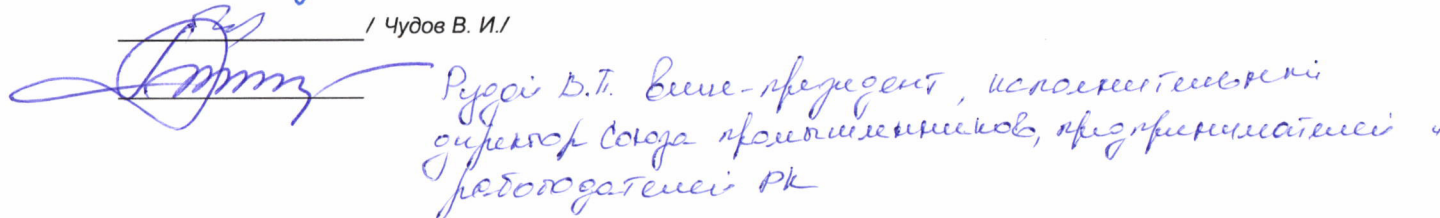 / Чудов В. И./
Руддой В.П. Вице-президент, исполнительный
директор Союза промышленников, предпринимателей и
работодателей РК